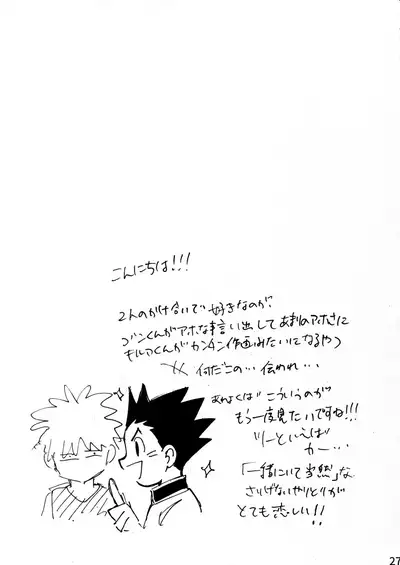 こんにちは!!!
2人のかけ合いで好きなのが、
ゴンくんがアホな事言い出してあまりのアホさに
キルアくんがカンタン作画みたいになるやつ
何だこの… 伝われ…
あわよくば こういうのが
もう一度見たいですね!!!
ツーといえば
カー…
「一緒にいて当然」な
さりげないやりとりが
とても恋しい!!
27